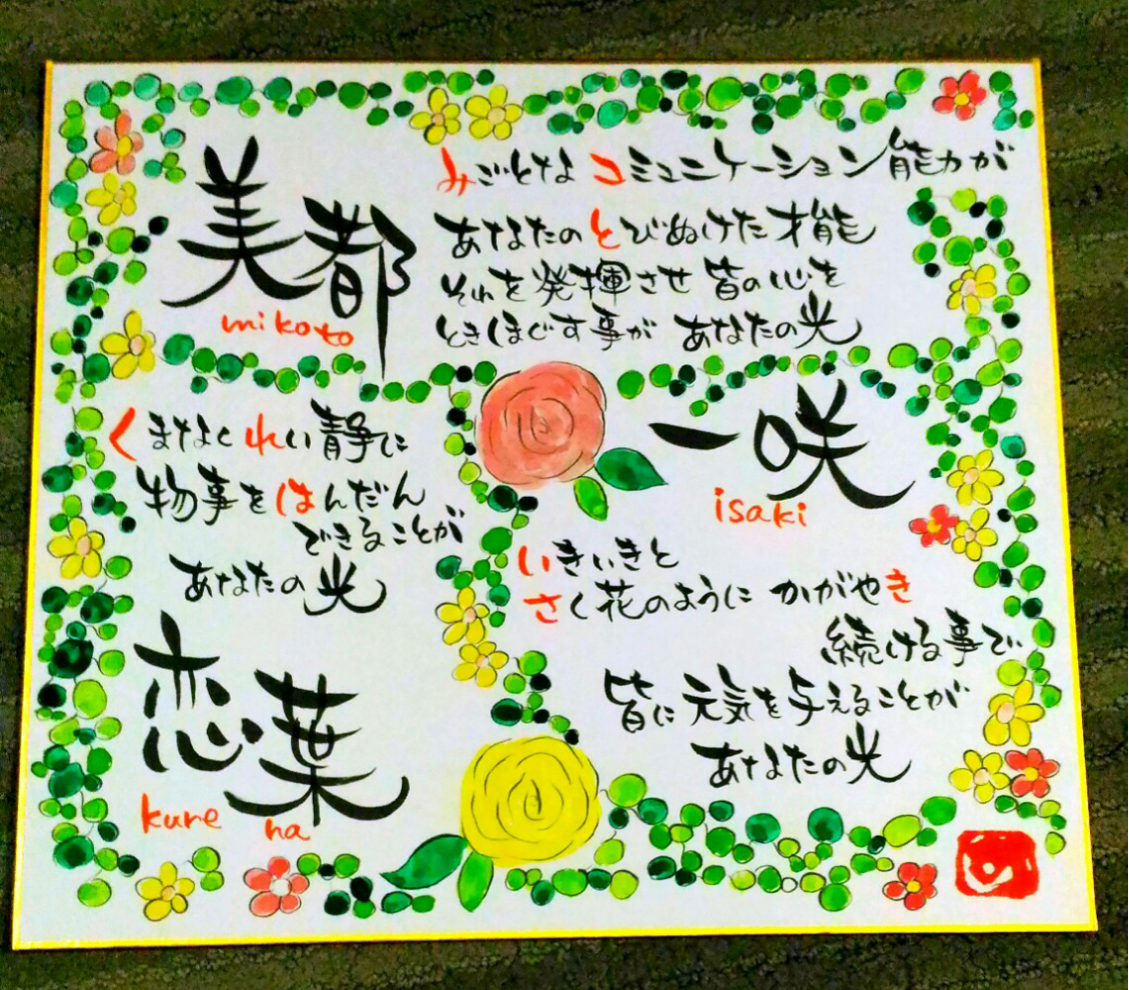 美都
mikoto
みごとな コミュニケーション能力が
あなたの とびぬけた才能
それを発揮させ 皆の心を
ときほぐす事が あなたの光
一咲
isaki
いきいきと
さく花のように かがやき
続ける事で
皆に元気を与えることが
あなたの光
くまなく れい静に
物事を はんだん
できることが
あなたの光
恋葉
kure ha